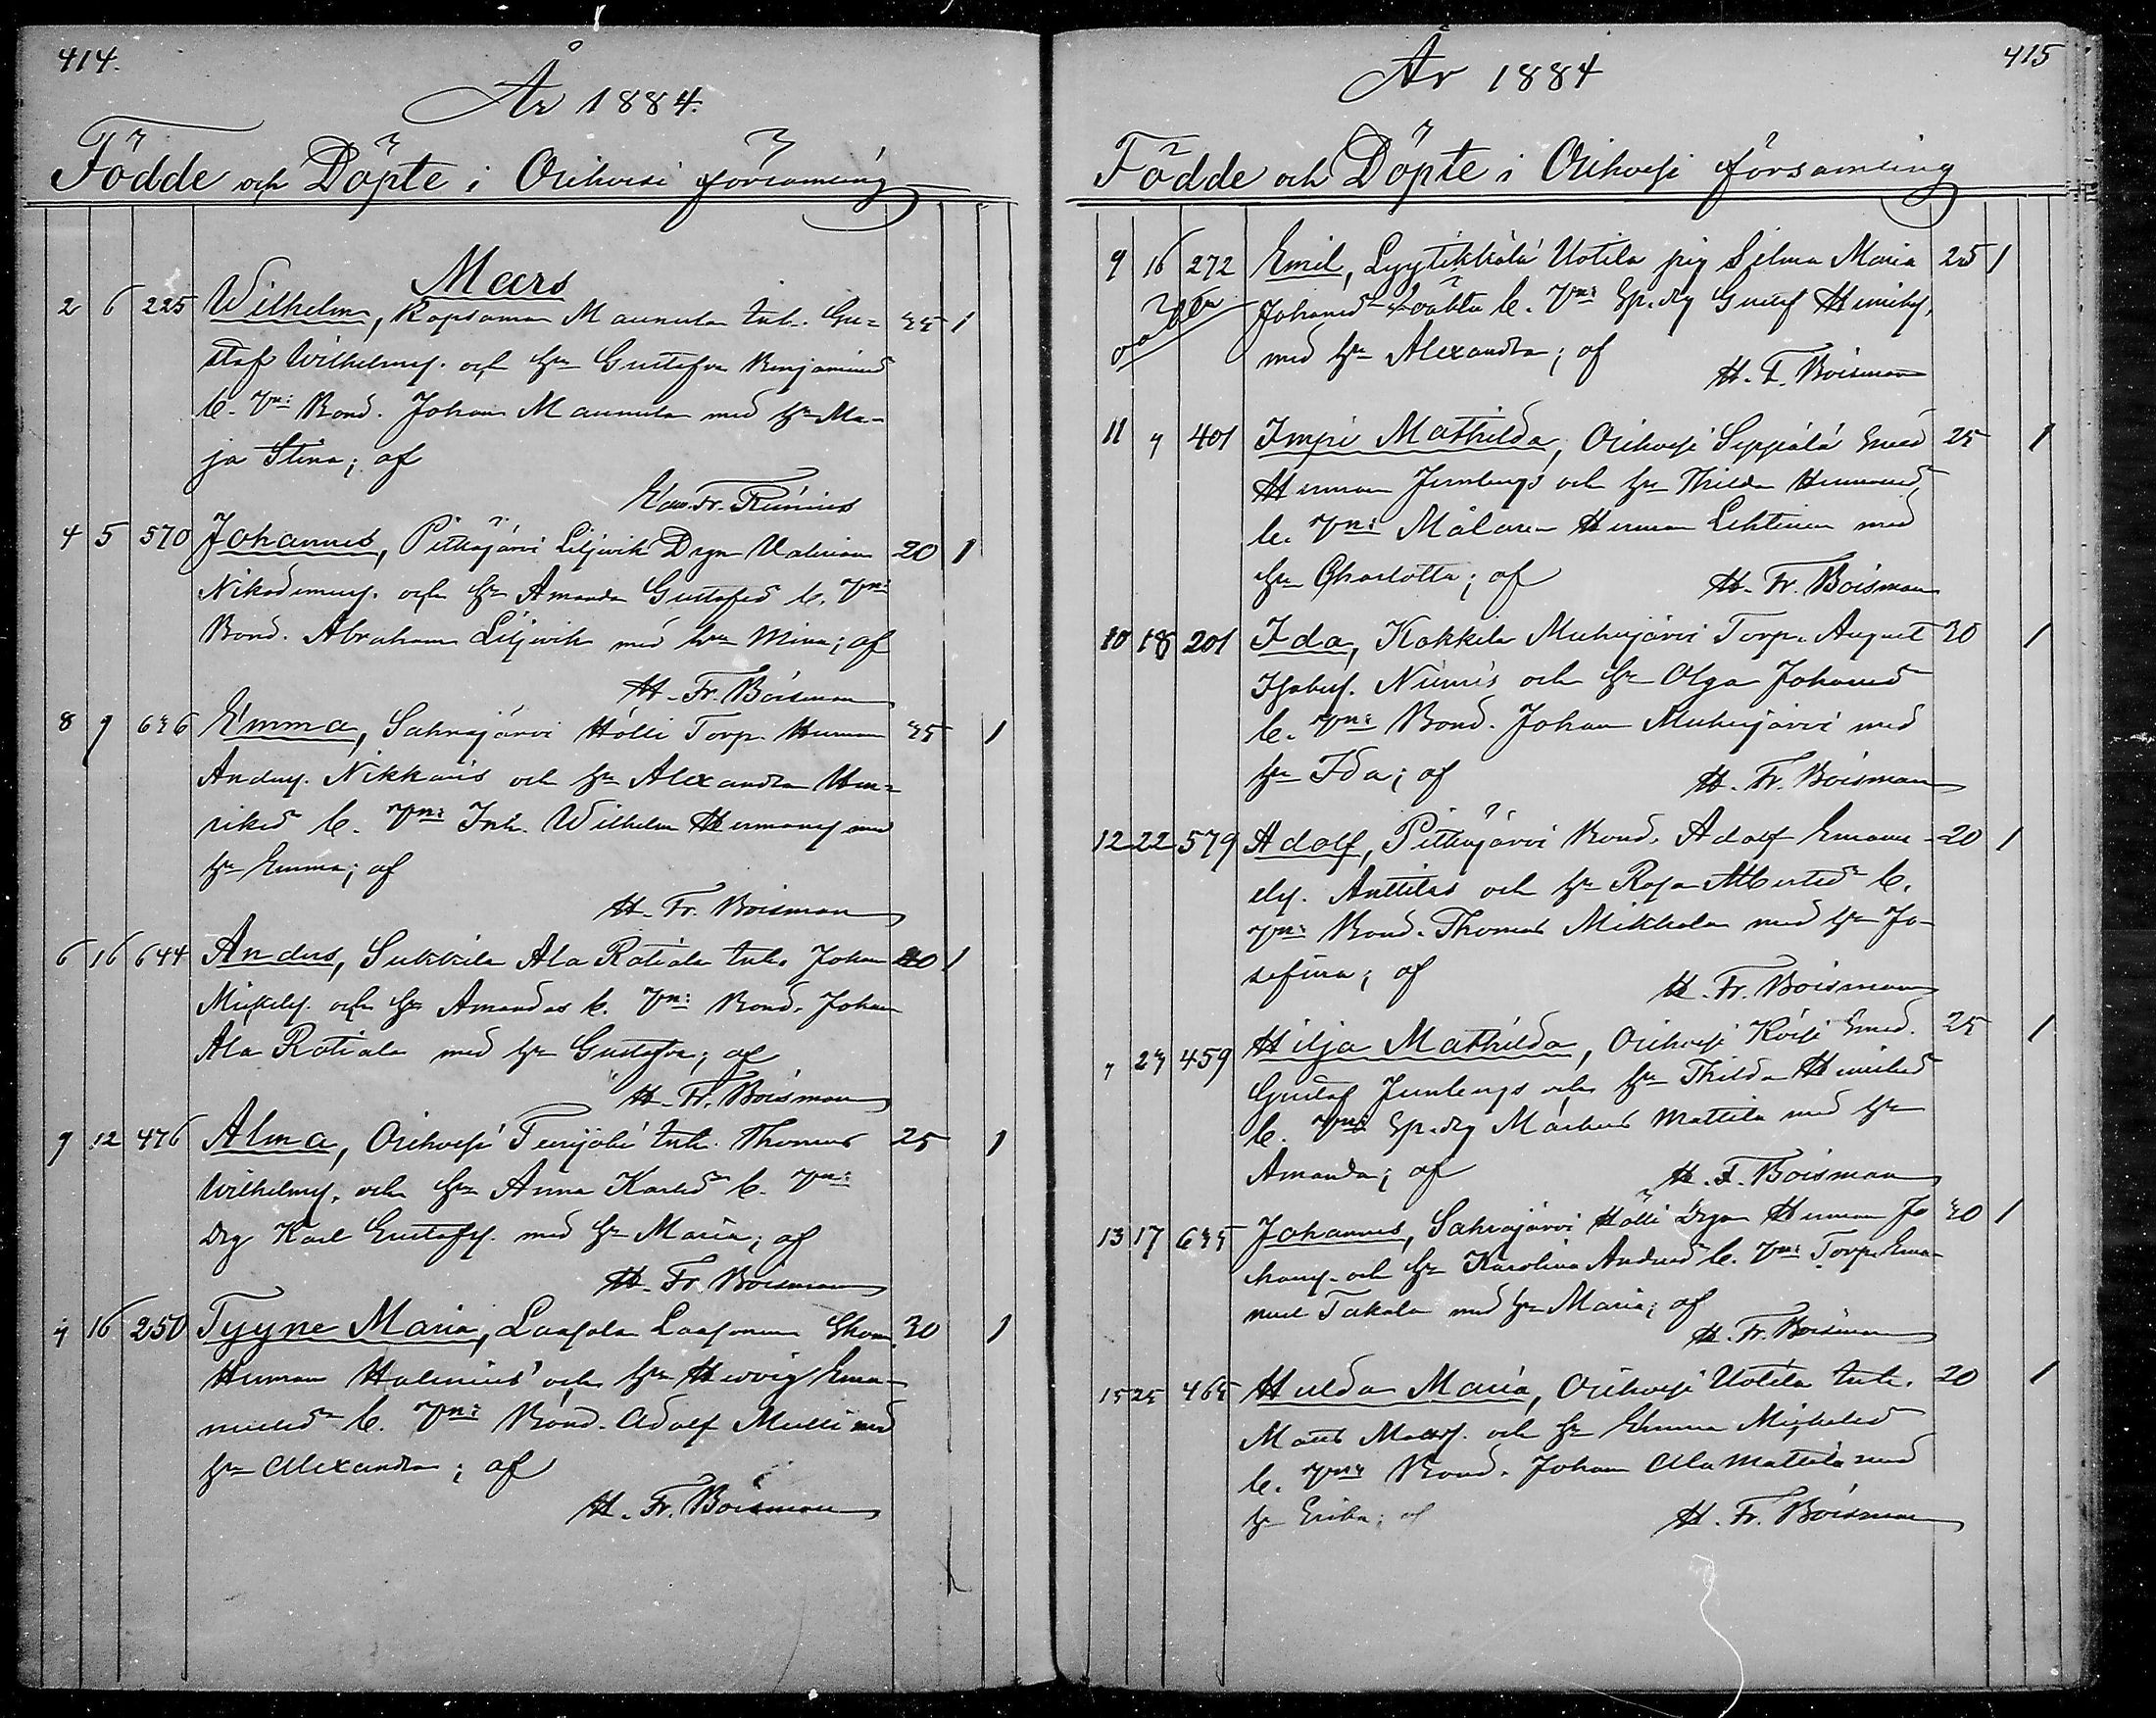 414.
År 1884.
Födde och Döpte i Orihvesi församling
Mars
2 6 225 Wilhelm, Kapsama Maunula Inh. Gu= 35 1
staf Wilhelmsf. och hu Gustafva Benjamind
b. Vn: Bond. Johan Maunula med hu Ma-
ja Stina; af
Edw. Fr. Runius
4 5 570 Johannes, Pitkäjärvi Liljevik Drgn 20 1
Nikodemusf. och hu Amanda Gustafsd b. Vn:
Bond. Abraham Liljevik med hu Mina; af
H. Fr. Boisman
8 9 636 Emma, Sahrajärvi Hölli Torp. Herman 35 1
Andersf. och hu Alexandra Hen=
riksd b. Vn: Inh. Wilhelm Hermansf med
hu Emma; af
H. Fr. Boisman
6 16 644 Anders, Sukkila Ala Rotiala Inh. Johan 20 1
Mickelsf. och hu Amanda b. Vn: Bond. Johan
Ala Rotiala med hu Gustafva; af
H. Fr. Boisman
9 12 476 Alma, Orihvesi Inh. Thomas 25 1
Wilhelmsf. och hu Anna Karlsd b. Vn:
Drg Karl Gustafsf. med hu Maria; af
H. Fr. Boisman
" 16 250 Tyyne Maria, Laasola Laasonen 30 1
Herman och hu Hedvig Ema-
nuelsd b. Vn: Bond. Adolf Mulli med
hu Alexandra; af
H. Fr. Boisman
415
År 1884
Födde och Döpte i Orihvesi församling
9 16 272 Emil, Lyytikkälä Uotila pig Selma Maria 25 1
Johansd b. Vn: Gustaf Henriksf.
med hu Alexandra; af
H. F. Boisman
11 " 401 Impi Mathilda, Orihvesi Seppälä Smed 25 1
Herman och hu Thilda Hermansd
b. Vn: Målaren Herman Lehtinen med
hu Charlotta; af H. Fr. Boisman
10 18 201 Ida, Kakkila Muhujärvi Torp. August 30 1
och hu Olga Johansd
b. Vn: Bond. Johan Muhujärvi med
hu Ida; af H. Fr. Boisman
12 22 579 Adolf, Pitkäjärvi Bond. Adolf Emanu- 20 1
elsf. Anttilas och hu Rosa Albertsd b.
Vn: Bond. Thomas Mikkola med hu Jo-
sefina; af H. Fr. Boisman
" 23 459 Hilja Mathilda, Orihvesi Smed. 25 1
Gustaf och hu Thilda Henriksd
b. Vn: Mattila med hu
Amanda; af H. F. Boisman
13 17 635 Johannes, Sahrajärvi Hölli Drgn Herman Jo 30 1
hansf. och hu Karolina Andersd b. Vn: Torp. Ema-
nuel Takala med hu Maria; af
H. Fr. Boisman
15 25 465 Hulda Maria, Orihvesi Uotila Inh. 20 1
Mats Matsf. och hu Emma Mickelsd
b. Vn: Bond. Johan Ala Mattila med
hu Erika; af H. Fr. Boisman